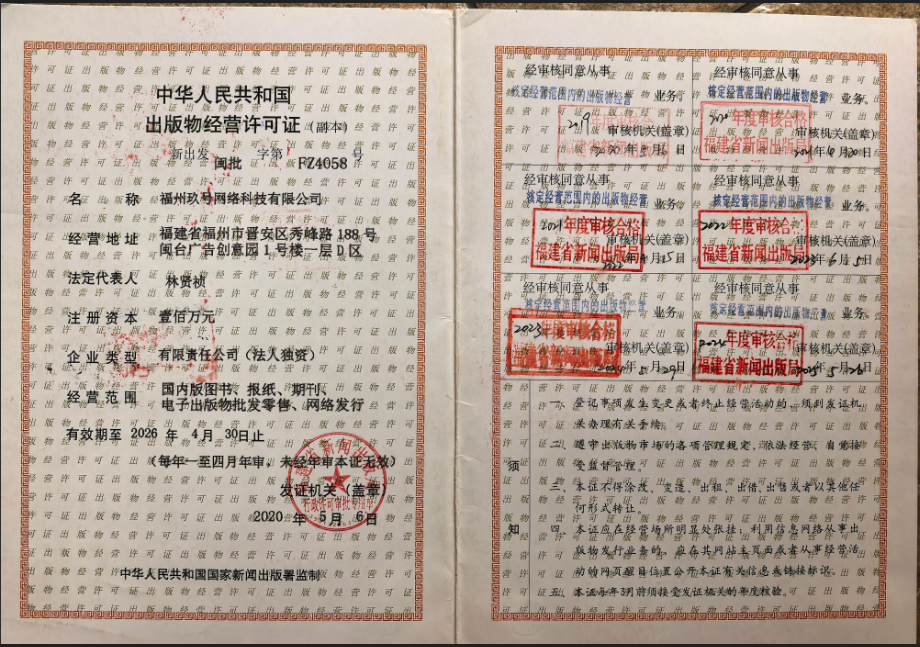 中华人民共和国
出版物经营许可证（副本）
新出发 闽批 字第 FZ4058 号
名称 福州玖号网络科技有限公司
经营地址 福建省福州市晋安区秀峰路188号
闽台广告创意园1号楼一层D区
法定代表人 林贤祯
注册资本 壹佰万元
企业类型 有限责任公司（法人独资）
经营范围 国内版图书、报纸、期刊、
电子出版物批发零售、网络发行
有效期至 2026 年 4 月 30日止
（每年一至四月年审，未经年审本证无效）
发证机关（盖章）
2020 年 5 月 6 日
中华人民共和国国家新闻出版署监制
经审核同意从事
核定经营范围内的出版物经营 业务。
2019
审核机关(盖章)
2020年5月6日
经审核同意从事
核定经营范围内的出版物经营 业务。
年度审核合格
审核机关(盖章)
福建省新闻出版局
经审核同意从事
核定经营范围内的出版物经营 业务。
2021年度审核合格
审核机关(盖章)
福建省新闻出版局
2022年4月15日
经审核同意从事
核定经营范围内的出版物经营 业务。
2022年度审核合格
审核机关(盖章)
福建省新闻出版局
2023年6月5日
经审核同意从事
核定经营范围内的出版物经营 业务。
2023年度审核合格
审核机关(盖章)
经审核同意从事
核定经营范围内的出版物经营 业务。
2024年度审核合格
审核机关(盖章)
福建省新闻出版局
2025年5月26日
须知
一、登记事项发生变更或者终止经营活动的，须到发证机
关办理有关手续。
二、遵守出版物市场的各项管理规定，依法经营，自觉接
受监督管理。
三、本证不得涂改、变造、出租、出借、出售或者以其他任
何形式转让。
四、本证应在经营场所明显处张挂；利用信息网络从事出
版物发行业务的，应在其网站主页面或者从事经营活
动的网页醒目位置公开本证有关信息或链接标识。
五、本证每年3月前须接受发证机关的年度核验。